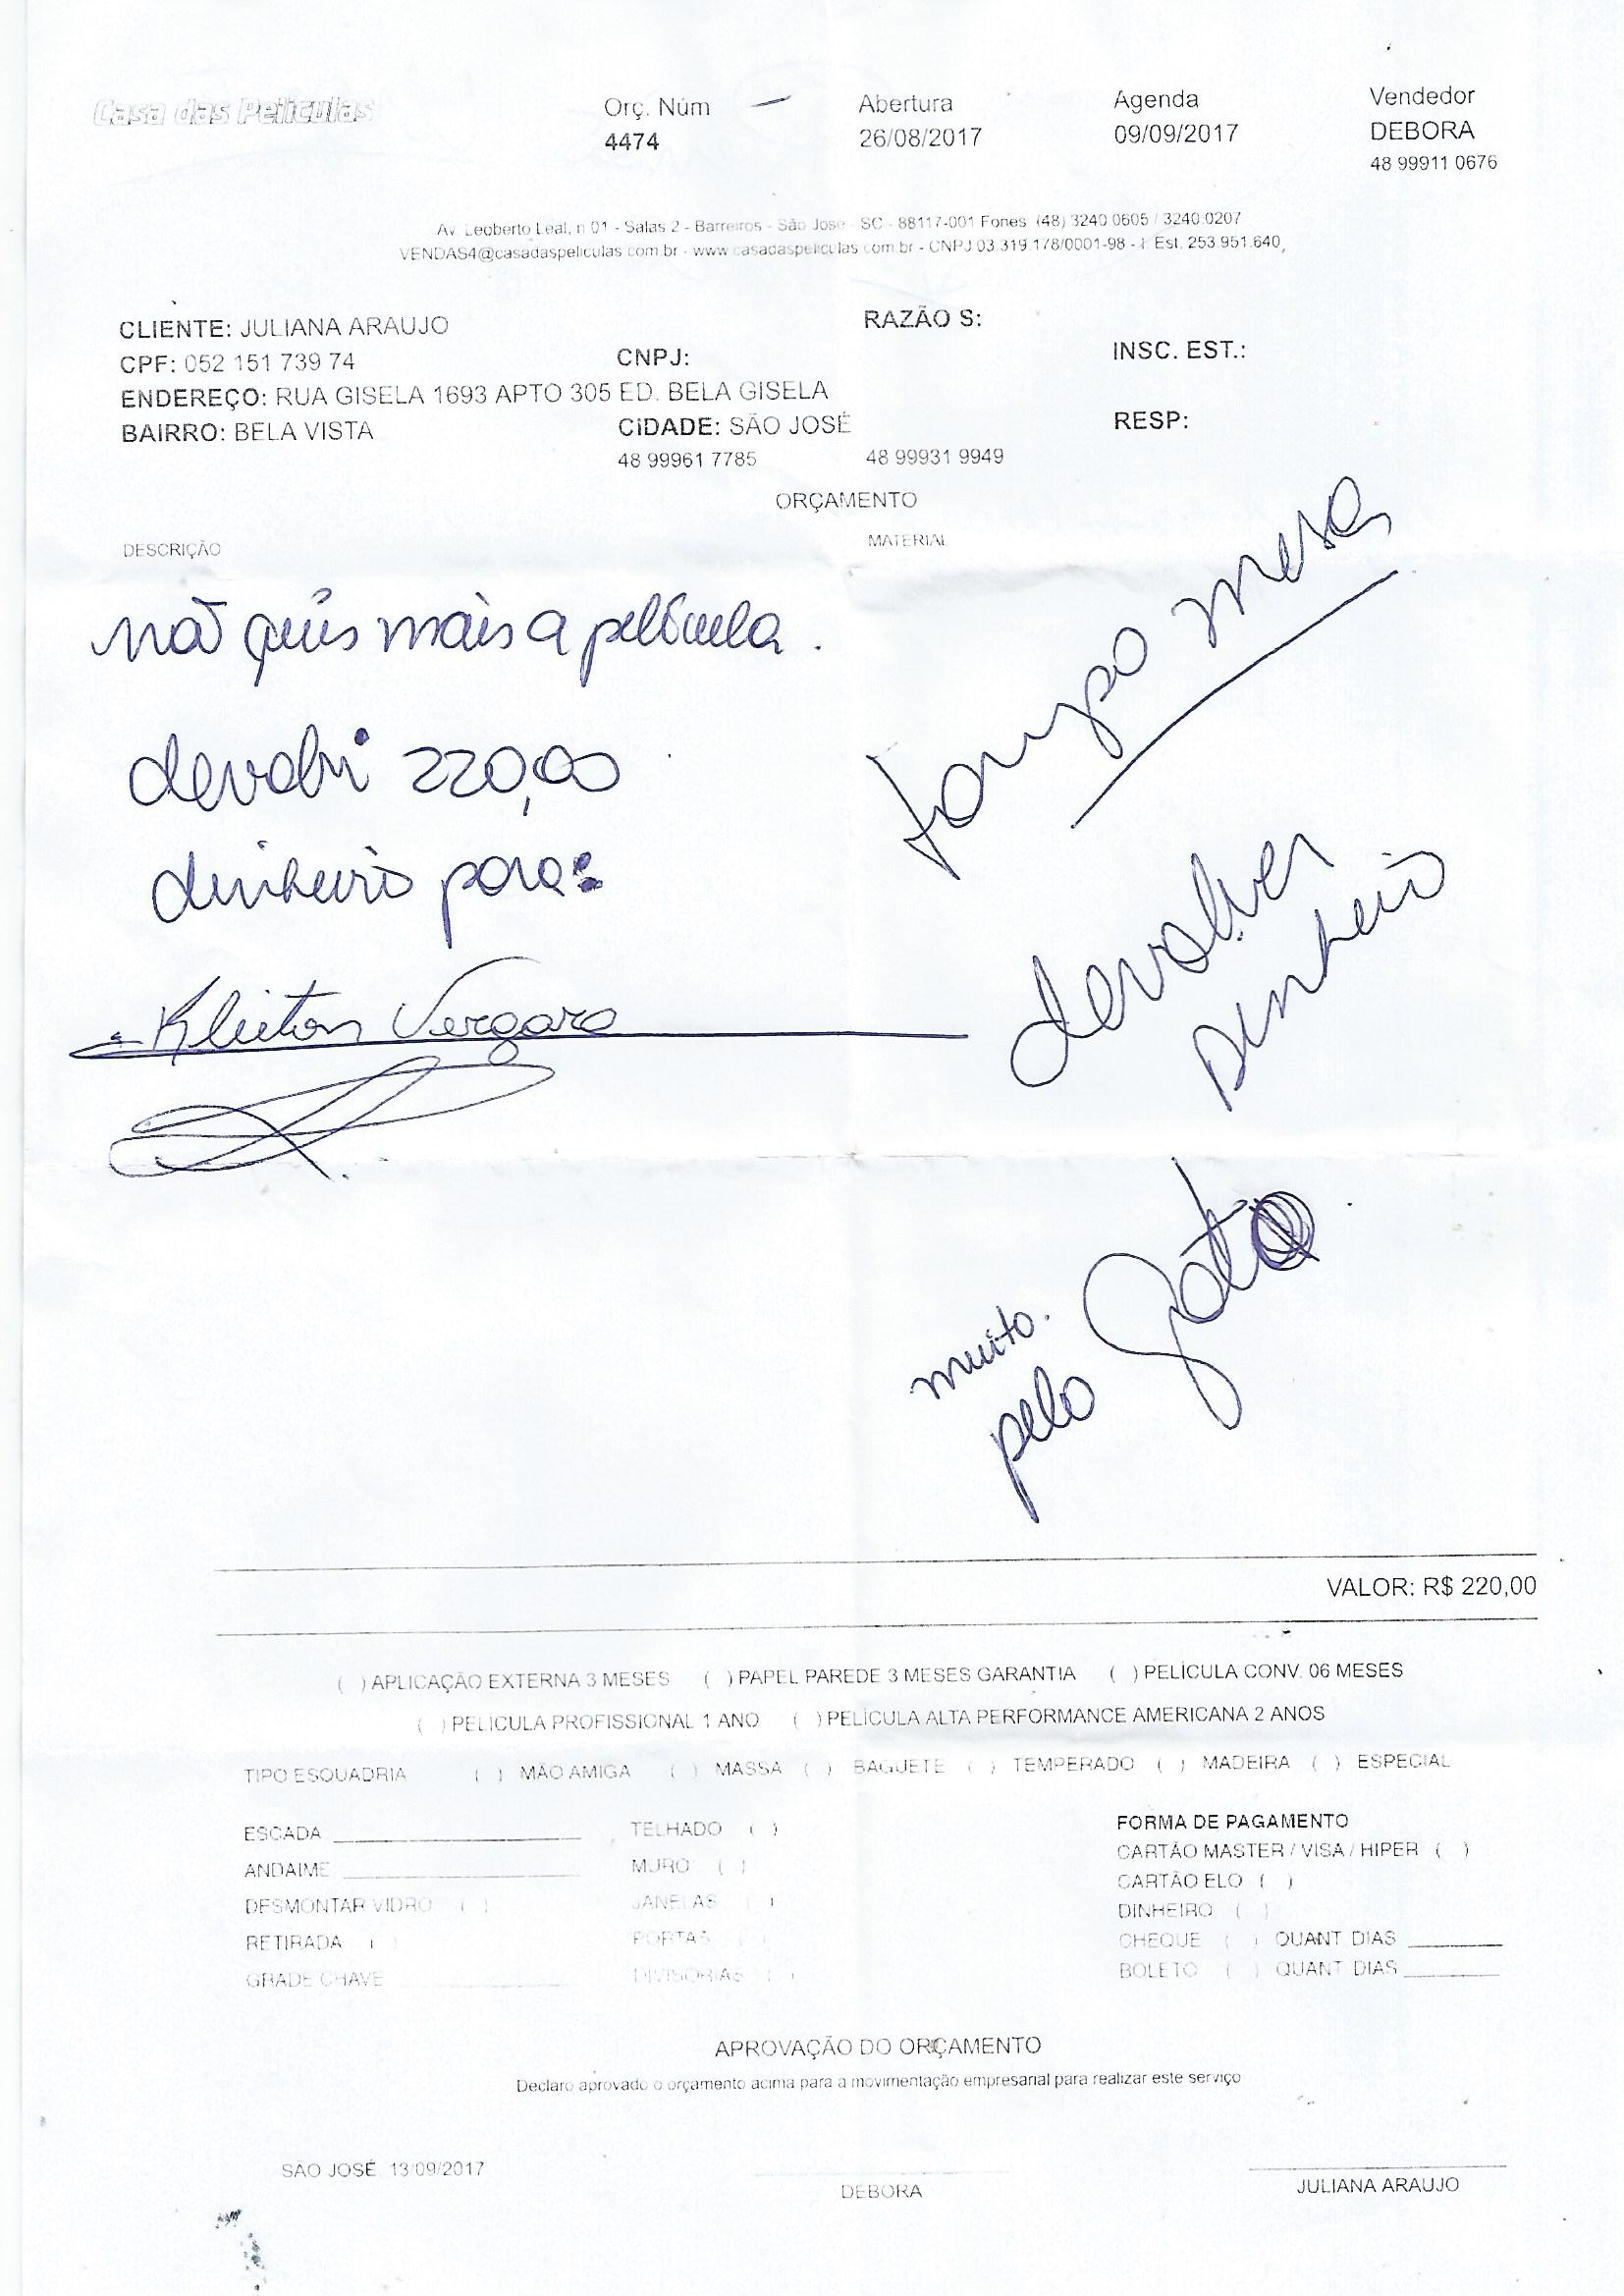 Casa das Películas
Orç. Núm
4474
Abertura
26/08/2017
Agenda
09/09/2017
Vendedor
DEBORA
48 99911 0676
Av. Leoberto Leal, n 01 - Salas 2 - Barreiros - São Jose - SC - 88117-001 Fones (48) 3240 0605 / 3240 0207
VENDAS4@casadaspeliculas.com.br - www.casadaspeliculas.com.br - CNPJ 03.319.178/0001-98 - I. Est. 253.951.640,
CLIENTE: JULIANA ARAUJO
RAZÃO S:
CPF: 052 151 739 74
CNPJ:
INSC. EST.:
ENDEREÇO: RUA GISELA 1693 APTO 305 ED. BELA GISELA
BAIRRO: BELA VISTA
CIDADE: SÃO JOSÉ
RESP:
48 99961 7785
48 99931 9949
ORÇAMENTO
DESCRIÇÃO
MATERIAL
não quis mais a película.
devolvi 220,00
dinheiro para:
Kleiton Vergara
tampo mesa
devolver
Dinheiro
muito.
pelo gato
VALOR: R$ 220,00
( ) APLICAÇÃO EXTERNA 3 MESES ( ) PAPEL PAREDE 3 MESES GARANTIA ( ) PELÍCULA CONV. 06 MESES
( ) PELICULA PROFISSIONAL 1 ANO ( ) PELÍCULA ALTA PERFORMANCE AMERICANA 2 ANOS
TIPO ESQUADRIA ( ) MÃO AMIGA ( ) MASSA ( ) BAGUETE ( ) TEMPERADO ( ) MADEIRA ( ) ESPECIAL
ESCADA
TELHADO ( )
FORMA DE PAGAMENTO
ANDAIME
MURO ( )
CARTÃO MASTER / VISA / HIPER ( )
DESMONTAR VIDRO ( )
JANELAS ( )
CARTÃO ELO ( )
RETIRADA ( )
PORTAS ( )
DINHEIRO ( )
GRADE CHAVE
DIVISORIAS ( )
CHEQUE ( ) QUANT DIAS
BOLETO ( ) QUANT DIAS
APROVAÇÃO DO ORÇAMENTO
Declaro aprovado o orçamento acima para a movimentação empresarial para realizar este serviço
SÃO JOSÉ, 13/09/2017
DEBORA
JULIANA ARAUJO